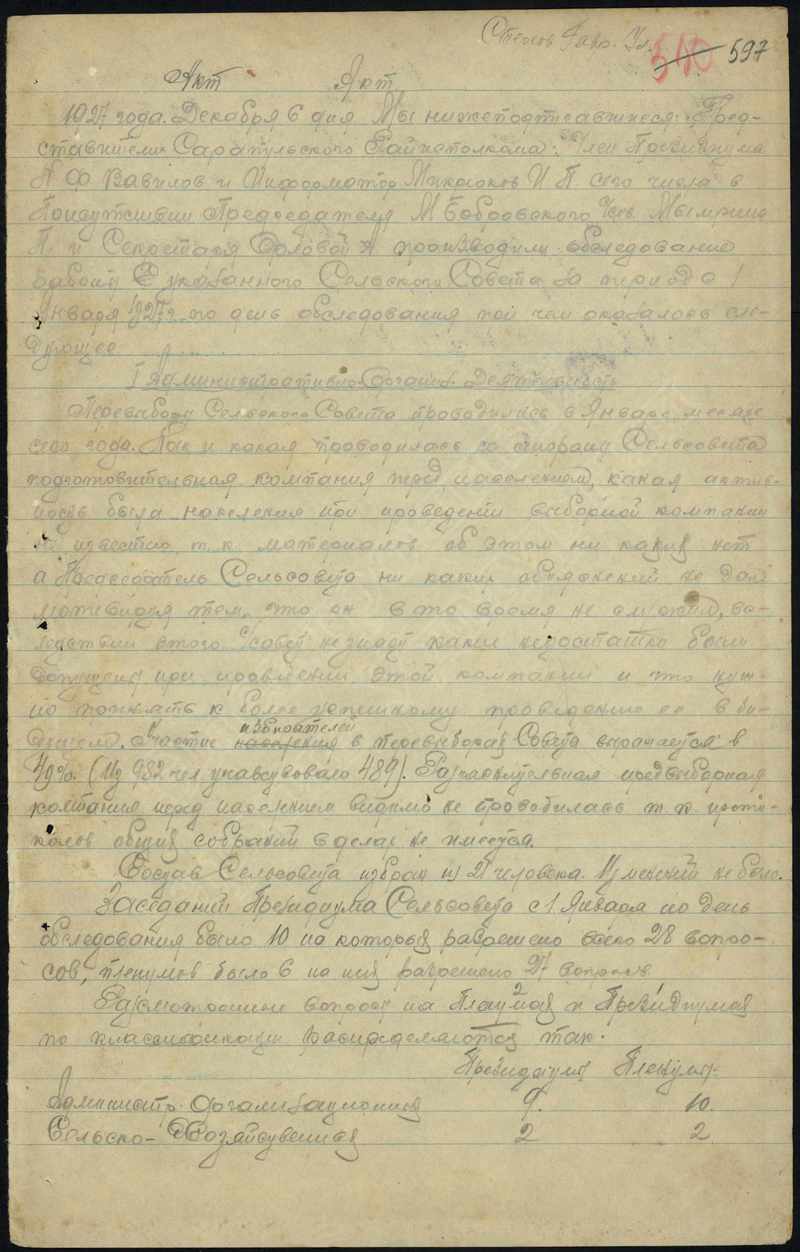 510 597
Акт Акт
1927 года. Декабря 6 дня Мы нижеподписавшиеся: Пред-
ставители Сарапульского Райисполкома: Член Президиума
А Ф Вавилов и Информатор И П. сего числа в
Присутствии Председателя М Бобровского
П. и Секретаря Орловой производили обследование
работы указанного Сельского Совета за период с 1
Января 1927 г. по день обследования при чем оказалось сле-
дующее
I Административно-Организ. Деятельность
Перевыборы Сельского Совета проводились в Январе месяце
сего года. Как и какая проводилась со стороны Сельсовета
подготовительная компания перед населением, какая актив-
ность была населения при проведении выборной компании
не известно, т.к. материалов об этом ни каких нет
а Председатель Сельсовета ни каких объяснений не дал
мотивируя тем, что он в то время не служил, вс-
ледствии этого Совет не знает какие недостатки были
допущены при проведении этой компании и что нуж-
но принять к более успешному проведению ее в бу-
дущем. Участие населения избирателей в перевыборах Совета выражается в
49%. (Из 982 чел участвовало 489). Разъяснительная предвыборная
компания перед населением видимо не проводилась т.к. прото-
колов общих собраний в делах не имеется.
Состав Сельсовета избран из 21 человека. Из женщин не было.
Заседаний Президиума Сельсовета с 1 Января по день
обследования было 10 на которых разрешено всего 28 вопро-
сов, пленумов было 6 на них разрешено 27 вопросов
Рассмотренные вопросы на Пленумах и Президиумах
по классификации распределяются так.
Президиумы Пленумы.
Администр. Организационных 9. 10.
Сельско-Хозяйственных 2 2